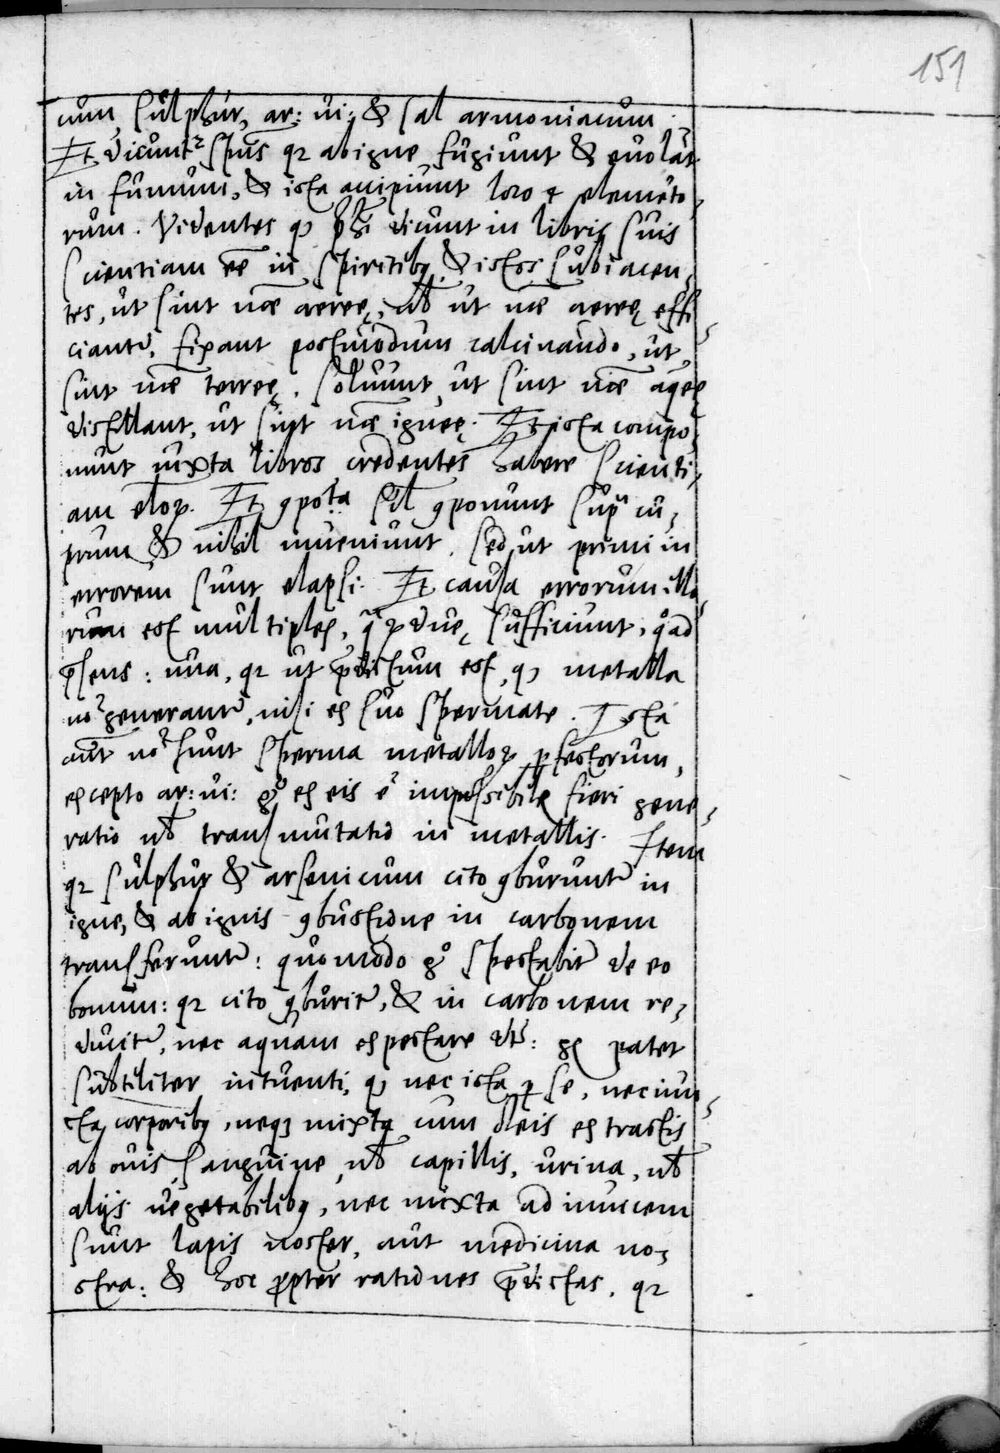 151
cum, sulphur, ar: vi: & sal armoniacum.
Et dicunt² sp̄us qꝛ ab igne fugiunt & euolāt
in fumum, & ista accipiunt loco 4 elemēto,
rum. Videntes qꝫ p̄hi dicunt in libris suis
scientiam eē in spiritibꝫ & istos subiacen,
tes, ut sint nāe aereę, ul̄ ut nāe aereę effi
ciantr̃, fixant postmodum calcinando, ut
sint nāe terreę. soluunt, ut sint nāe aqeę
distillant, ut sint nāe igneę. Et ista compo,
nunt iuxta libros credentes habere scienti,
am eloꝝ. Et ꝯpoᵗa sil̄ ꝯponunt supᵃ cu,
prum & nihil inueniunt. sed ut primi in
errorem sunt elapsi. Et causa errorum illo,
rum est multiplex, q̄ ꝓ duę sufficiunt, qᵒad
p̄sens: una, qꝛ ut p̄dictum est, qꝫ metalla
nō generantr̃, nisi ex suo spermate. Ista
aūt nō sunt sperma metalloꝝ ꝑfectorum,
excepto ar: vi: gᵒ ex eis ē impossibile fieri gene,
ratio ul̄ transmutatio in metallis. Item
qꝛ sulphur & arsenicum cito ꝯburuntr̃ in
igne, & ab ignis ꝯbustione in carbonem
transferuntr̃: quomodo gᵒ spectabitr̃ de eo
bonum: qꝛ cito ꝯburitr̃, & in carbonem re,
ducitr̃, nec aquam expectare patet
subtiliter intuenti, qꝫ nec ista ꝑ se, nec iun,
cta corporibꝫ, neqꝫ mixta cum oleis extractis
ab ouis sanguine, ul̄ capillis, urina, ul̄
alijs uegetabilibꝫ, nec mixta ad inuicem
sunt lapis noster, aut medicina no,
stra: & hoc ꝓpter rationes p̄dictas, qꝛ